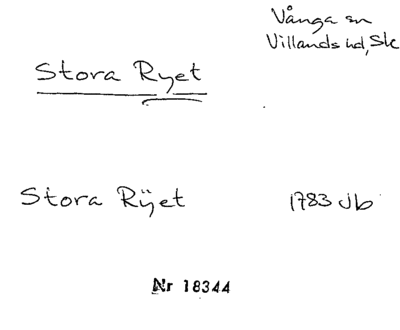 Vånga sn
Villands hd, Sk
Stora Ryet
Stora Rÿet 1783 Jb
Nr 18344